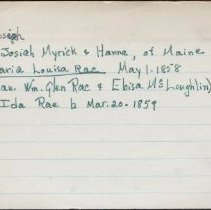 Josiah Myrick & Hanna, of Maine
aria Louisa Rae May 1-1858
au. Wm. Glen Rae & Eloisa McLoughlin)
Ida Rae b Mar. 20. 1859